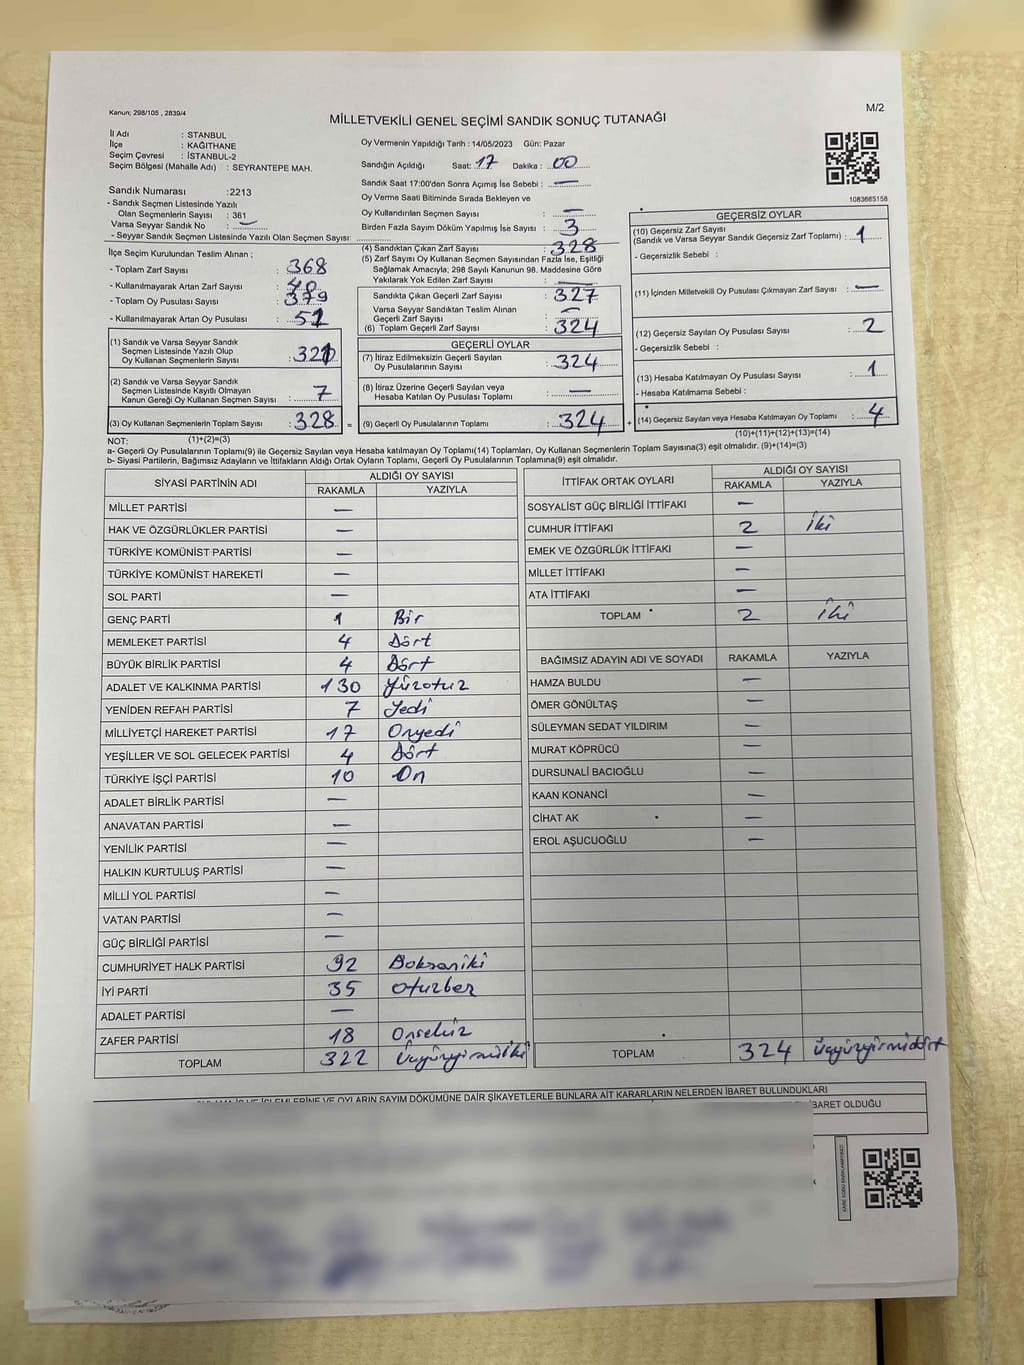 Kanun; 298/105 , 2839/4
M/2
MİLLETVEKİLİ GENEL SEÇİMİ SANDIK SONUÇ TUTANAĞI
İl Adı : STANBUL
İlçe : KAĞITHANE
Seçim Çevresi : İSTANBUL-2
Seçim Bölgesi (Mahalle Adı) : SEYRANTEPE MAH.
Sandık Numarası :2213
- Sandık Seçmen Listesinde Yazılı
Olan Seçmenlerin Sayısı : 361
Varsa Seyyar Sandık No : —
- Seyyar Sandık Seçmen Listesinde Yazılı Olan Seçmen Sayısı:
İlçe Seçim Kurulundan Teslim Alınan ;
- Toplam Zarf Sayısı : 368
- Kullanılmayarak Artan Zarf Sayısı : 40
- Toplam Oy Pusulası Sayısı : 379
- Kullanılmayarak Artan Oy Pusulası : 51
(1) Sandık ve Varsa Seyyar Sandık
Seçmen Listesinde Yazılı Olup
Oy Kullanan Seçmenlerin Sayısı : 321
(2) Sandık ve Varsa Seyyar Sandık
Seçmen Listesinde Kayıtlı Olmayan
Kanun Gereği Oy Kullanan Seçmen Sayısı : 7
(3) Oy Kullanan Seçmenlerin Toplam Sayısı : 328 =
Oy Vermenin Yapıldığı Tarih : 14/05/2023 Gün: Pazar
Sandığın Açıldığı Saat: 17 Dakika : 00
Sandık Saat 17:00'den Sonra Açımış İse Sebebi : —
Oy Verme Saati Bitiminde Sırada Bekleyen ve
Oy Kullandırılan Seçmen Sayısı : —
Birden Fazla Sayım Döküm Yapılmış İse Sayısı : 3
(4) Sandıktan Çıkan Zarf Sayısı : 328
(5) Zarf Sayısı Oy Kullanan Seçmen Sayısından Fazla İse, Eşitliği
Sağlamak Amacıyla; 298 Sayılı Kanunun 98. Maddesine Göre
Yakılarak Yok Edilen Zarf Sayısı :
Sandıkta Çıkan Geçerli Zarf Sayısı : 327
Varsa Seyyar Sandıktan Teslim Alınan
Geçerli Zarf Sayısı : —
(6) Toplam Geçerli Zarf Sayısı : 324
GEÇERLİ OYLAR
(7) İtiraz Edilmeksizin Geçerli Sayılan
Oy Pusulalarının Sayısı : 324
(8) İtiraz Üzerine Geçerli Sayılan veya
Hesaba Katılan Oy Pusulası Toplamı : —
(9) Geçerli Oy Pusulalarının Toplamı : 324 +
1083665158
GEÇERSİZ OYLAR
(10) Geçersiz Zarf Sayısı
(Sandık ve Varsa Seyyar Sandık Geçersiz Zarf Toplamı) : 1
- Geçersizlik Sebebi :
(11) İçinden Milletvekili Oy Pusulası Çıkmayan Zarf Sayısı : —
(12) Geçersiz Sayılan Oy Pusulası Sayısı : 2
- Geçersizlik Sebebi :
(13) Hesaba Katılmayan Oy Pusulası Sayısı : 1
- Hesaba Katılmama Sebebi :
(14) Geçersiz Sayılan veya Hesaba Katılmayan Oy Toplamı : 4
(10)+(11)+(12)+(13)=(14)
NOT: (1)+(2)=(3)
a- Geçerli Oy Pusulalarının Toplamı(9) ile Geçersiz Sayılan veya Hesaba katılmayan Oy Toplamı(14) Toplamları, Oy Kullanan Seçmenlerin Toplam Sayısına(3) eşit olmalıdır. (9)+(14)=(3)
b- Siyasi Partilerin, Bağımsız Adayların ve İttifakların Aldığı Ortak Oyların Toplamı, Geçerli Oy Pusulalarının Toplamına(9) eşit olmalıdır.
SİYASİ PARTİNİN ADI ALDIĞI OY SAYISI
RAKAMLA YAZIYLA
MİLLET PARTİSİ —
HAK VE ÖZGÜRLÜKLER PARTİSİ —
TÜRKİYE KOMÜNİST PARTİSİ —
TÜRKİYE KOMÜNİST HAREKETİ —
SOL PARTİ —
GENÇ PARTİ 1 Bir
MEMLEKET PARTİSİ 4 Dört
BÜYÜK BİRLİK PARTİSİ 4 Dört
ADALET VE KALKINMA PARTİSİ 130 Yüzotuz
YENİDEN REFAH PARTİSİ 7 Yedi
MİLLİYETÇİ HAREKET PARTİSİ 17 Onyedi
YEŞİLLER VE SOL GELECEK PARTİSİ 4 Dört
TÜRKİYE İŞÇİ PARTİSİ 10 On
ADALET BİRLİK PARTİSİ —
ANAVATAN PARTİSİ —
YENİLİK PARTİSİ —
HALKIN KURTULUŞ PARTİSİ —
MİLLİ YOL PARTİSİ —
VATAN PARTİSİ —
GÜÇ BİRLİĞİ PARTİSİ —
CUMHURİYET HALK PARTİSİ 92 Doksaniki
İYİ PARTİ 35 otuzbeş
ADALET PARTİSİ —
ZAFER PARTİSİ 18 Onsekiz
TOPLAM 322 üçyüzyirmiiki
İTTİFAK ORTAK OYLARI ALDIĞI OY SAYISI
RAKAMLA YAZIYLA
SOSYALİST GÜÇ BİRLİĞİ İTTİFAKI —
CUMHUR İTTİFAKI 2 iki
EMEK VE ÖZGÜRLÜK İTTİFAKI —
MİLLET İTTİFAKI —
ATA İTTİFAKI —
TOPLAM 2 iki
BAĞIMSIZ ADAYIN ADI VE SOYADI RAKAMLA YAZIYLA
HAMZA BULDU —
ÖMER GÖNÜLTAŞ —
SÜLEYMAN SEDAT YILDIRIM —
MURAT KÖPRÜCÜ —
DURSUNALİ BACIOĞLU —
KAAN KONANCİ —
CİHAT AK —
EROL AŞUCUOĞLU —
TOPLAM 324 üçyüzyirmidört
İŞLEMLERİNE VE OYLARIN SAYIM DÖKÜMÜNE DAİR ŞİKAYETLERLE BUNLARA AİT KARARLARIN NELERDEN İBARET BULUNDUKLARI
İBARET OLDUĞU